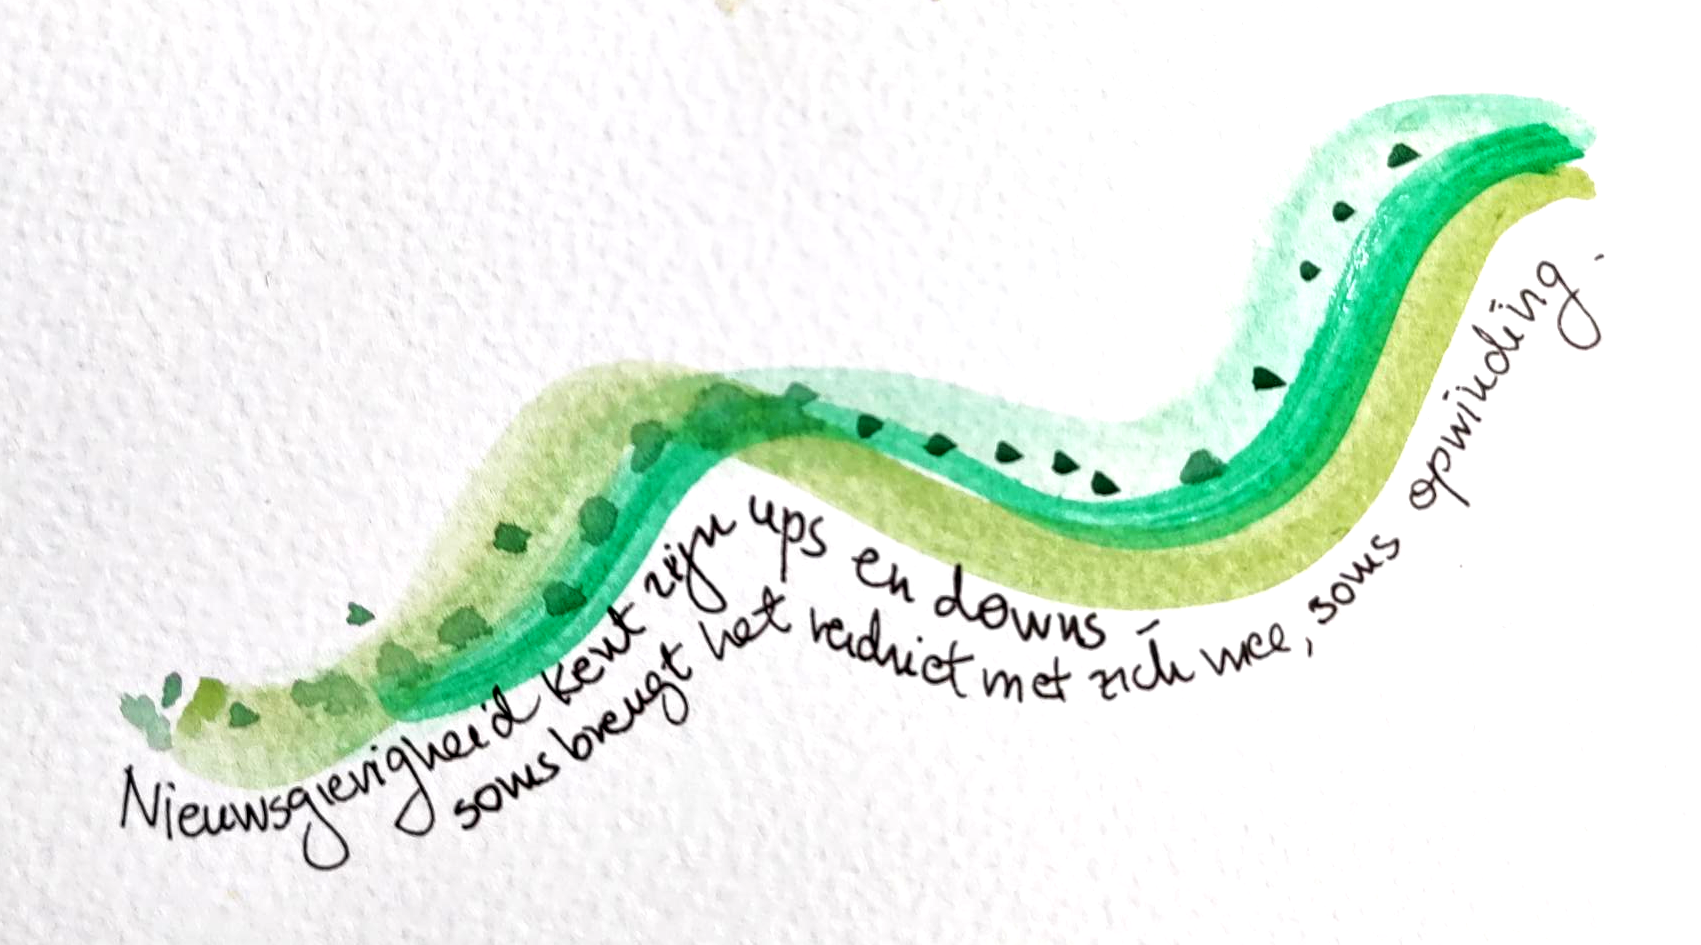 Nieuwsgierigheid kent zijn ups en downs
soms brengt het verdriet met zich mee, soms opwinding.